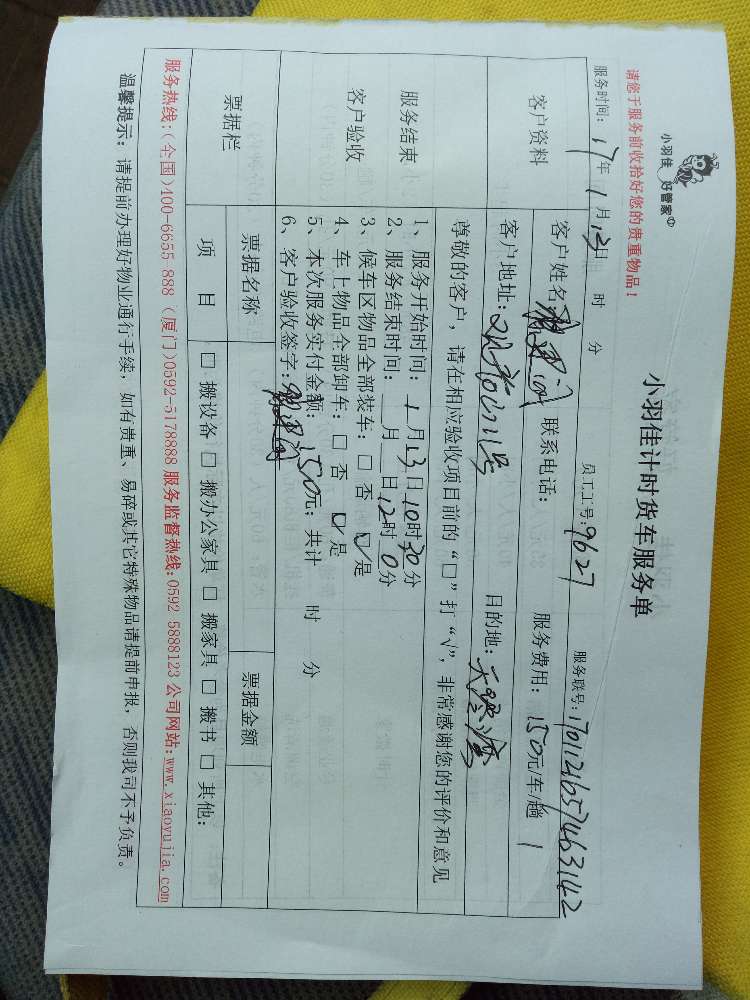 小羽佳 好管家
小羽佳计时货车服务单
请您于服务前收拾好您的贵重物品！
服务时间：17年1月13日 时 分 员工工号：9627 服务联号：1701121657463142
客户资料
客户姓名 联系电话： 服务费用：150元/车/趟 1
客户地址： 目的地：天琴湾
尊敬的客户，请在相应验收项目前的“□”打“√”，非常感谢您的评价和意见
服务结束
客户验收
1、服务开始时间：1月13日10时30分
2、服务结束时间： 月 日12时0分
3、候车区物品全部装车：□ 否 ☑是
4、车上物品全部卸车：□ 否 ☑是
5、本次服务实付金额：150元；共计 时 分
6、客户验收签字：
票据栏
票据名称 票据金额
项 目 □ 搬设备 □ 搬办公家具 □ 搬家具 □ 搬书 □ 其他：
服务热线：（全国）400-6655 888 （厦门）0592-5178888 服务监督热线：0592 5888123 公司网站：www.xiaoyujia.com
温馨提示：请提前办理好物业通行手续，如有贵重、易碎或其它特殊物品请提前申报，否则我司不予负责。